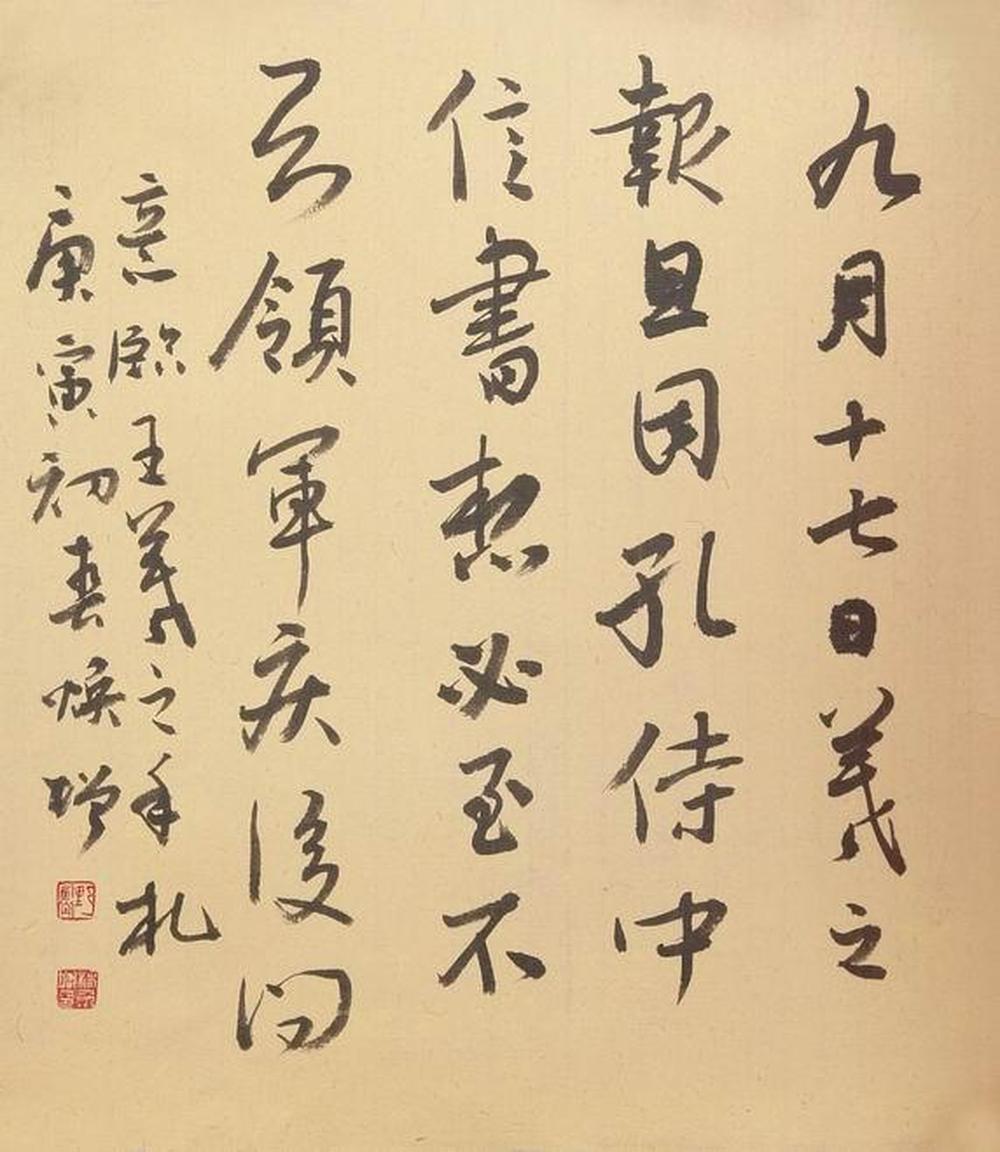 九月十七日羲之
報且因孔侍中
信書想必至不
知領軍疾後問
意臨王羲之手札
庚寅初春煥增